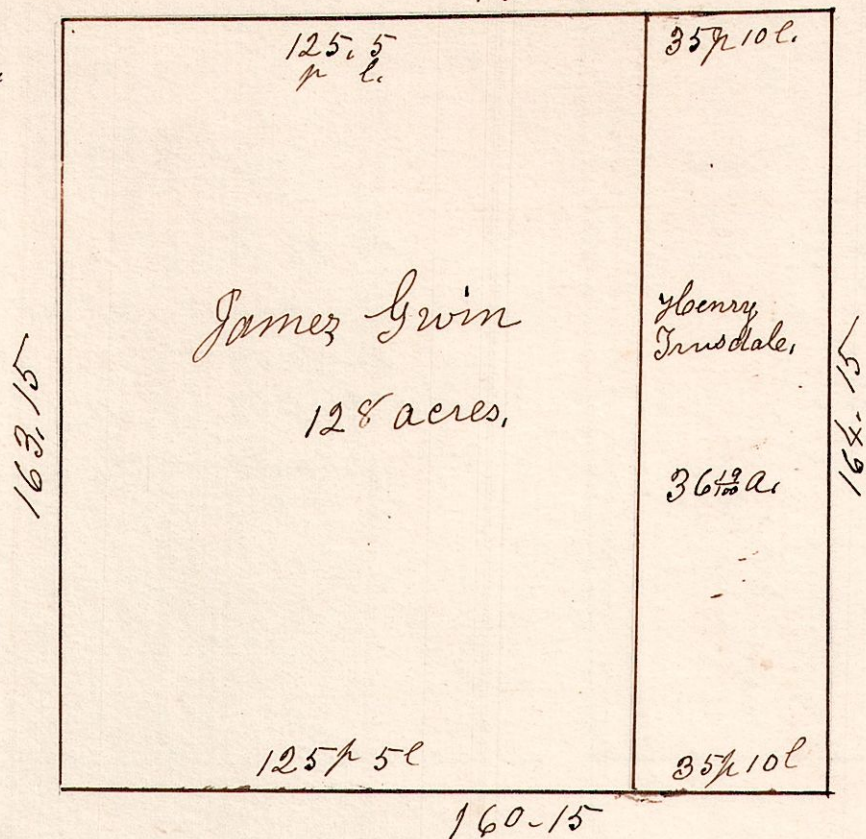 125.5
p l.
35p10l.
James Gwin
128 acres.
Henry
Trusdale.
36 19/100 a.
163.15
164.15
125p 5l
35p10l
160-15